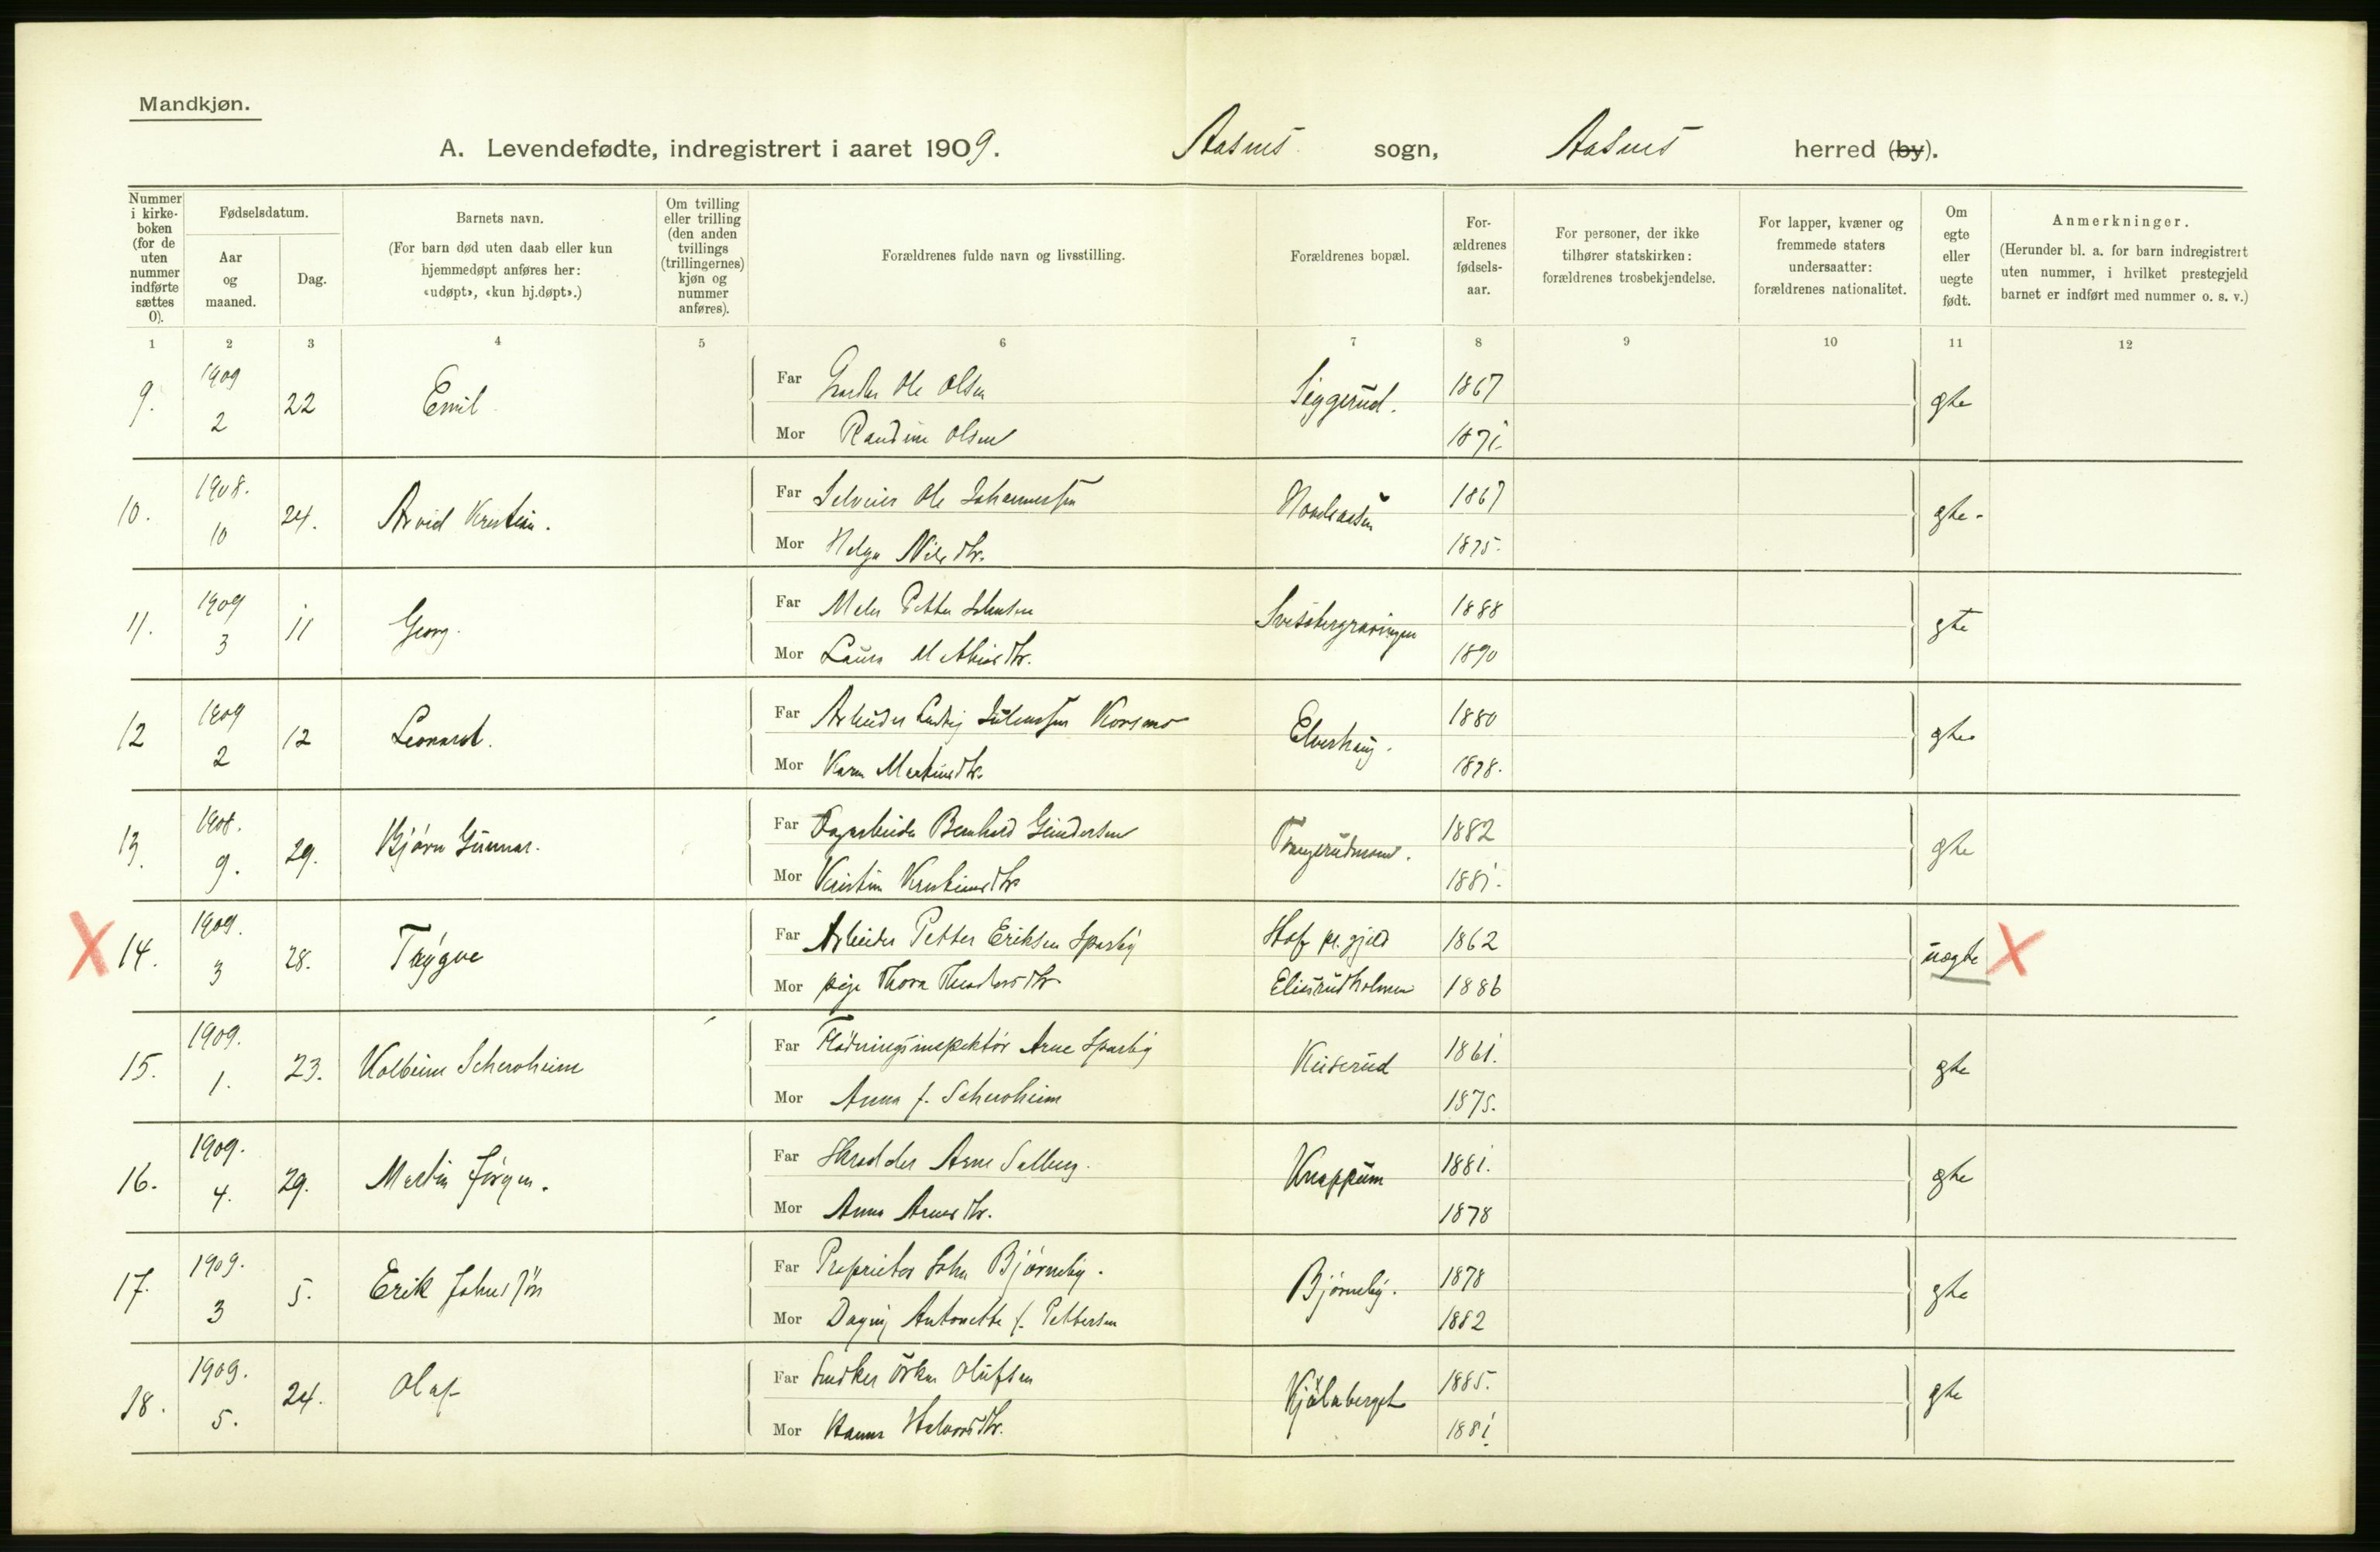 Mandkjøn.
A. Levendefødte, indregistrert i aaret 1909. Aasnes sogn, Aasnes herred (by).
Nummer i kirke-boken (for de uten nummer indførte sættes 0).
Fødselsdatum.
Aar og maaned.
Dag.
Barnets navn.
(For barn død uten daab eller kun hjemmedøpt anføres her: «udøpt», «kun hj.døpt».)
Om tvilling eller trilling (den anden tvillings (trillingernes) kjøn og nummer anføres).
Forældrenes fulde navn og livsstilling.
Forældrenes bopæl.
For-ældrenes fødsels-aar.
For personer, der ikke tilhører statskirken: forældrenes trosbekjendelse.
For lapper, kvæner og fremmede staters undersaatter: forældrenes nationalitet.
Om egte eller uegte født.
Anmerkninger.
(Herunder bl. a. for barn indregistrert uten nummer, i hvilket prestegjeld barnet er indført med nummer o. s. v.)
1 2 3 4 5 6 7 8 9 10 11 12
9. 1909 2 22 Emil
Far Ole Olsen Siggerud. 1867 gte
Mor Randine Olsen 1871.
10. 1908. 10 24. Arvid Kristian.
Far Selveier Ole Johannessen 1867 gte.
Mor Helga Nilsdtr. 1875.
11. 1909 3 11 Georg.
Far Maler Petter Johnsen 1888 gte
Mor Laura Mathisdtr. 1890
12 1909 2 12 Leonard.
Far Arbeider Ludvig Korsmo Elverhaug. 1880 gte.
Mor Karen Martinsdtr. 1878.
13. 1908. 9. 29. Bjørn Gunnar.
Far Dagarbeider Bernhard Gundersen 1882 gte
Mor Kristine Kristiansdtr 1881.
X 14. 1909. 3 28. Trygve
Far Arbeider Petter Eriksen Sparby Hof pr.gjeld 1862 uegte X
Mor pige Thora Theodorsdtr. 1886
15. 1909. 1. 23. Kolbein Scheroheim
Far Fløtningsinspektør Arne Sparby Keiserud 1861. gte
Mor Anna f. Scheroheim 1875.
16. 1909. 4. 29. Martin Jørgen.
Far Skrædder Arne Solberg. Knappum 1881. gte
Mor Anna Arnesdtr. 1878
17. 1909. 3 5. Erik Johnssøn
Far Proprietær John Bjørneby. Bjørneby. 1878 gte
Mor Dagny Antonette f. Pettersen 1882
18. 1909. 5. 24. Olaf
Far Snedker Oskar Olufsen Kjølaberget 1885. gte
Mor Hanna Halvorsdtr. 1881.